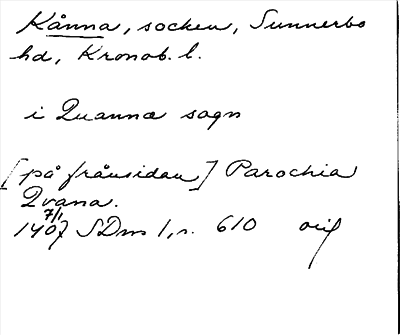 Kånna, socken, Sunnerbo
hd, Kronob. l.
i Quanna sogn
[på frånsidan] Parochia
Qvana.
7/1
1407 SDns 1, s. 610 orig